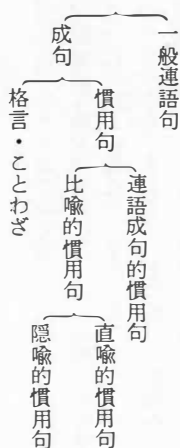 一般連語句
成句
慣用句
格言・ことわざ
連語成句的慣用句
比喩的慣用句
直喩的慣用句
隠喩的慣用句